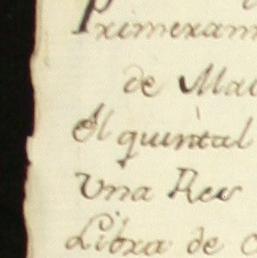 Primeram
de Ma
El quintal
Una Res
Libra de